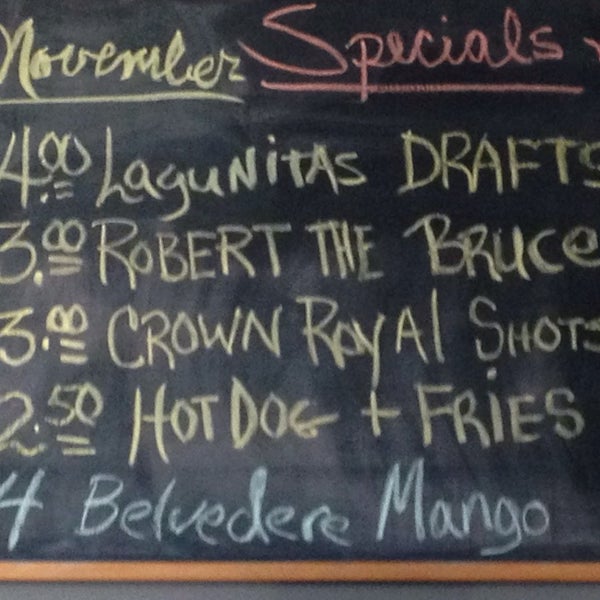 November Specials
4.00 Lagunitas DRAFTS
3.00 ROBERT THE BRUCE
3.00 CROWN ROYAl SHOTS
2.50 HOT DOG + FRiES
4 Belvedere Mango